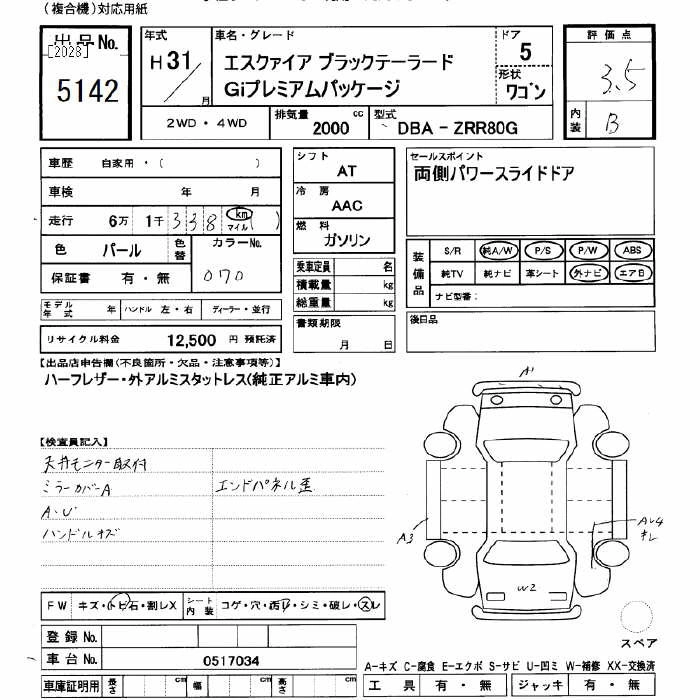 (複合機)対応用紙
出品No.
[2028]
5142
年式
H31
月
車名・グレード
エスクァイア ブラックテーラード
Giプレミアムパッケージ
ドア
5
形状
ワゴン
評価点
3.5
内装
B
2WD・4WD
排気量
2000
cc
型式
DBA - ZRR80G
車歴 自家用・( )
車検 年 月
走行 6万 1千 338 km
マイル ( )
色 パール 色替 カラーNo.
070
保証書 有・無
モデル年式 年 ハンドル 左・右 ディーラー・並行
リサイクル料金 12,500 円 預託済
シフト
AT
冷房
AAC
燃料
ガソリン
乗車定員 名
積載量 kg
総重量 kg
書類期限
月 日
セールスポイント
両側パワースライドドア
装備品
S/R 純A/W P/S P/W ABS
純TV 純ナビ 革シート 外ナビ エアB
ナビ型番:
後日品
【出品店申告欄(不良箇所・欠品・注意事項等)】
ハーフレザー・外アルミスタットレス(純正アルミ車内)
【検査員記入】
天井モニター取付
ミラーカバーA
エンドパネル歪
A・U
ハンドルキズ
A1
A3
AU4
キレ
W2
FW キズ・トビ石・割レX シート内装 コゲ・穴・凹・シミ・破レ・スレ
登録No.
車台No. 0517034
スペア
A-キズ C-腐食 E-エクボ S-サビ U-凹ミ W-補修 XX-交換済
車庫証明用 長さ cm 幅 cm 高さ cm
工具 有・無 ジャッキ 有・無